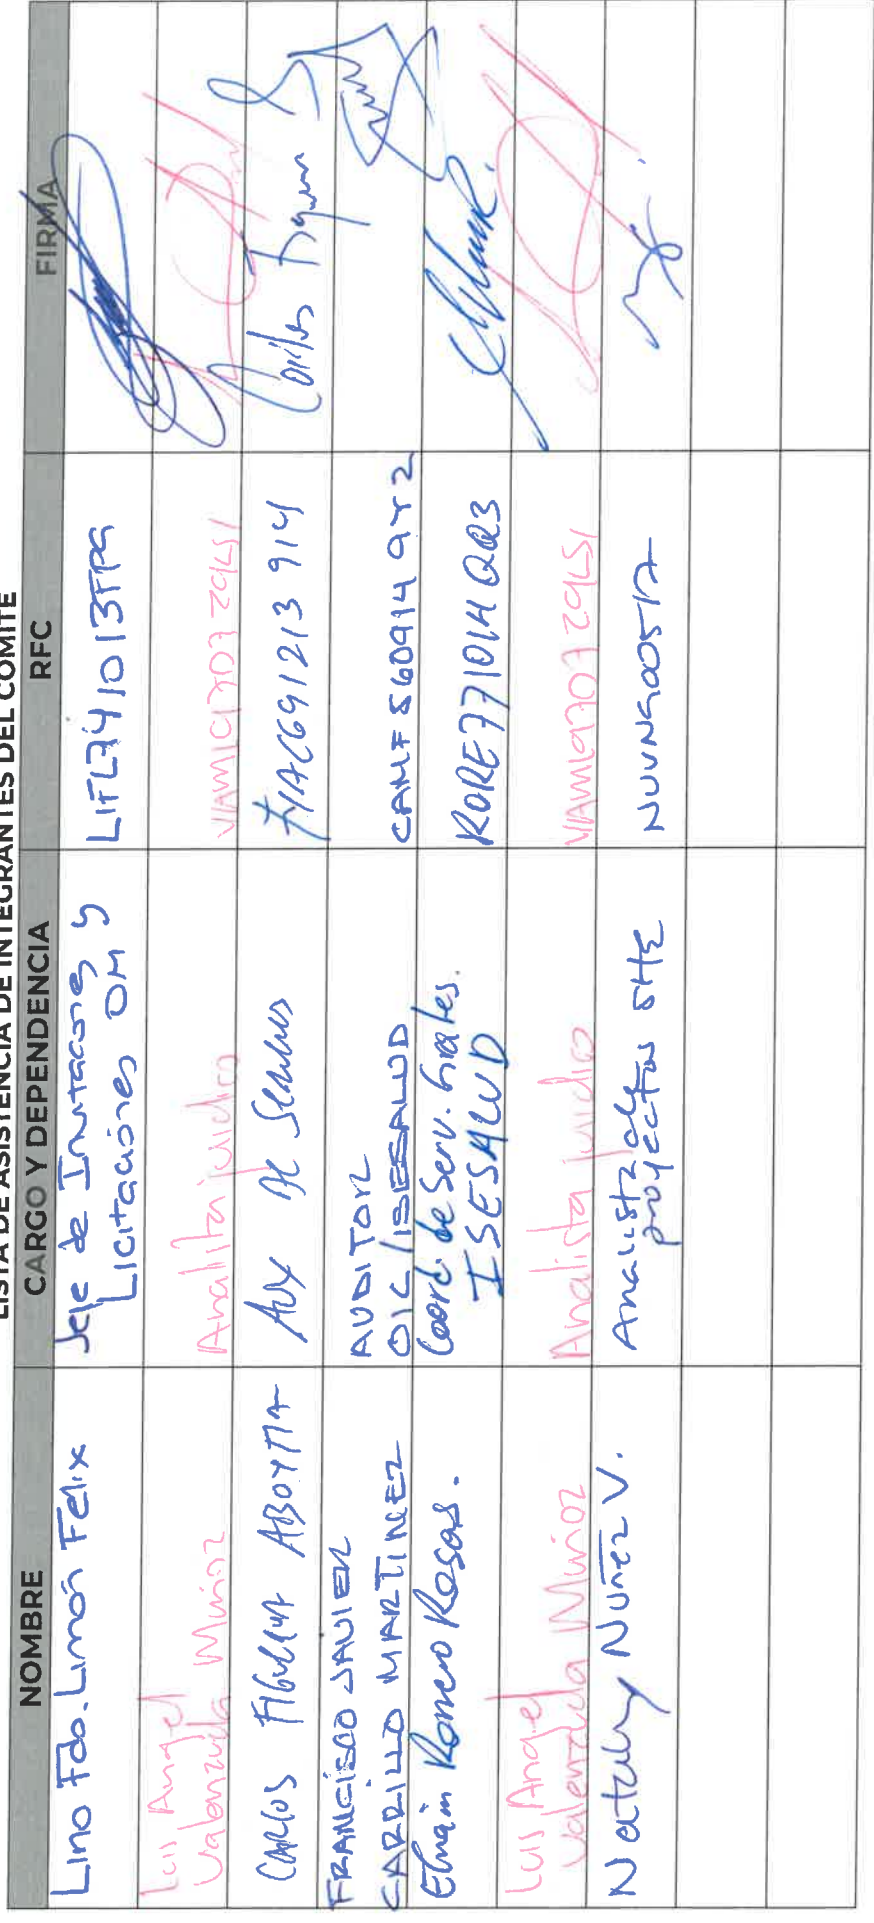 LISTA DE ASISTENCIA DE INTEGRANTES DEL COMITÉ
NOMBRE CARGO Y DEPENDENCIA RFC FIRMA
Lino Fdo. Limón Felix
Jefe de Invitaciones y
Licitaciones OM
LIFL741013FPG
Luis Angel
Valenzuela Muñoz
Analista juidico
CARLOS FIGUEROA ABOYTIA
AUX DE Servicios
FIAC691213 914
Carlos Figueroa
FRANCISCO JAVIER
CARRILLO MARTINEZ
AUDITOR
OIC/ISESALUD
CAMF560914 9Y2
Efraín Romero Rosas.
Coord. de Serv. Grales.
ISESALUD
RORE771014QQ3
Luis Angel
Valenzuela Muñoz
Analista juidico
Nataly Nuñez V.
Analista de
proyectos SHE